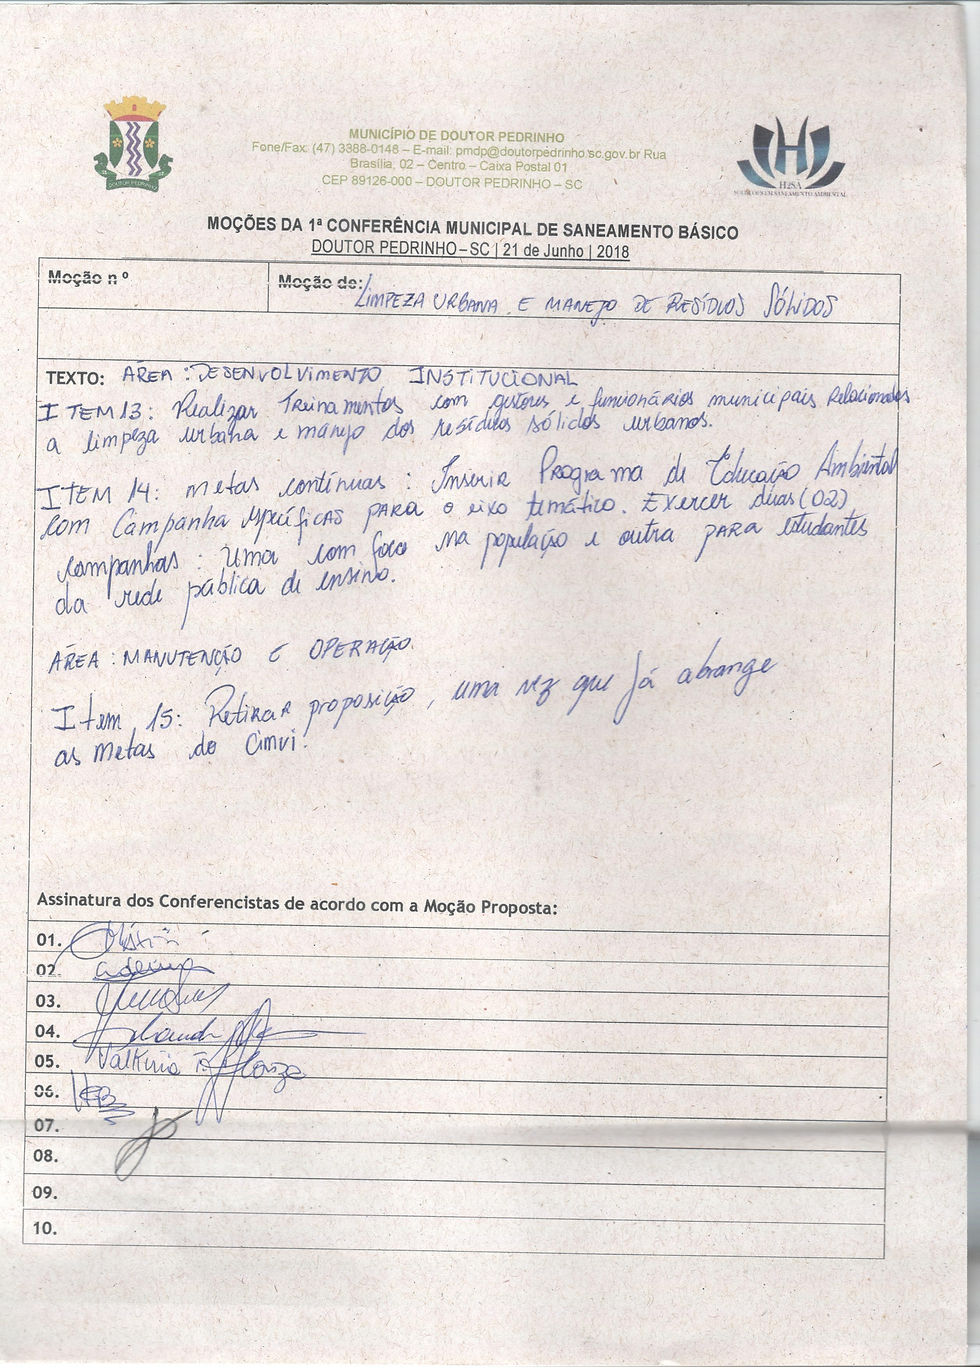 MUNICÍPIO DE DOUTOR PEDRINHO
Fone/Fax: (47) 3388-0148 – E-mail: pmdp@doutorpedrinho.sc.gov.br Rua
Brasília, 02 – Centro – Caixa Postal 01
CEP 89126-000 – DOUTOR PEDRINHO – SC
DOUTOR PEDRINHO
H2SA
SOLUÇÕES EM SANEAMENTO AMBIENTAL
MOÇÕES DA 1ª CONFERÊNCIA MUNICIPAL DE SANEAMENTO BÁSICO
DOUTOR PEDRINHO – SC | 21 de Junho | 2018
Moção n º
Moção de: LIMPEZA URBANA E MANEJO DE RESÍDUOS SÓLIDOS
TEXTO: ÁREA: DESENVOLVIMENTO INSTITUCIONAL
ITEM 13: Realizar Treinamentos com gestores e funcionários municipais Relacionados
a limpeza urbana e manejo dos resíduos sólidos urbanos.
ITEM 14: metas contínuas: Inserir Programa de Educação Ambiental
com Campanha específicas PARA o eixo temático. Exercer duas (02)
campanhas: uma com foco na população e outra PARA estudantes
da rede pública de ensino.
ÁREA: MANUTENÇÃO E OPERAÇÃO.
Item 15: Retirar proposição, uma vez que já abrange
as metas do Cimvi.
Assinatura dos Conferencistas de acordo com a Moção Proposta:
01.
02.
03.
04.
05. Valkiria
06.
07.
08.
09.
10.